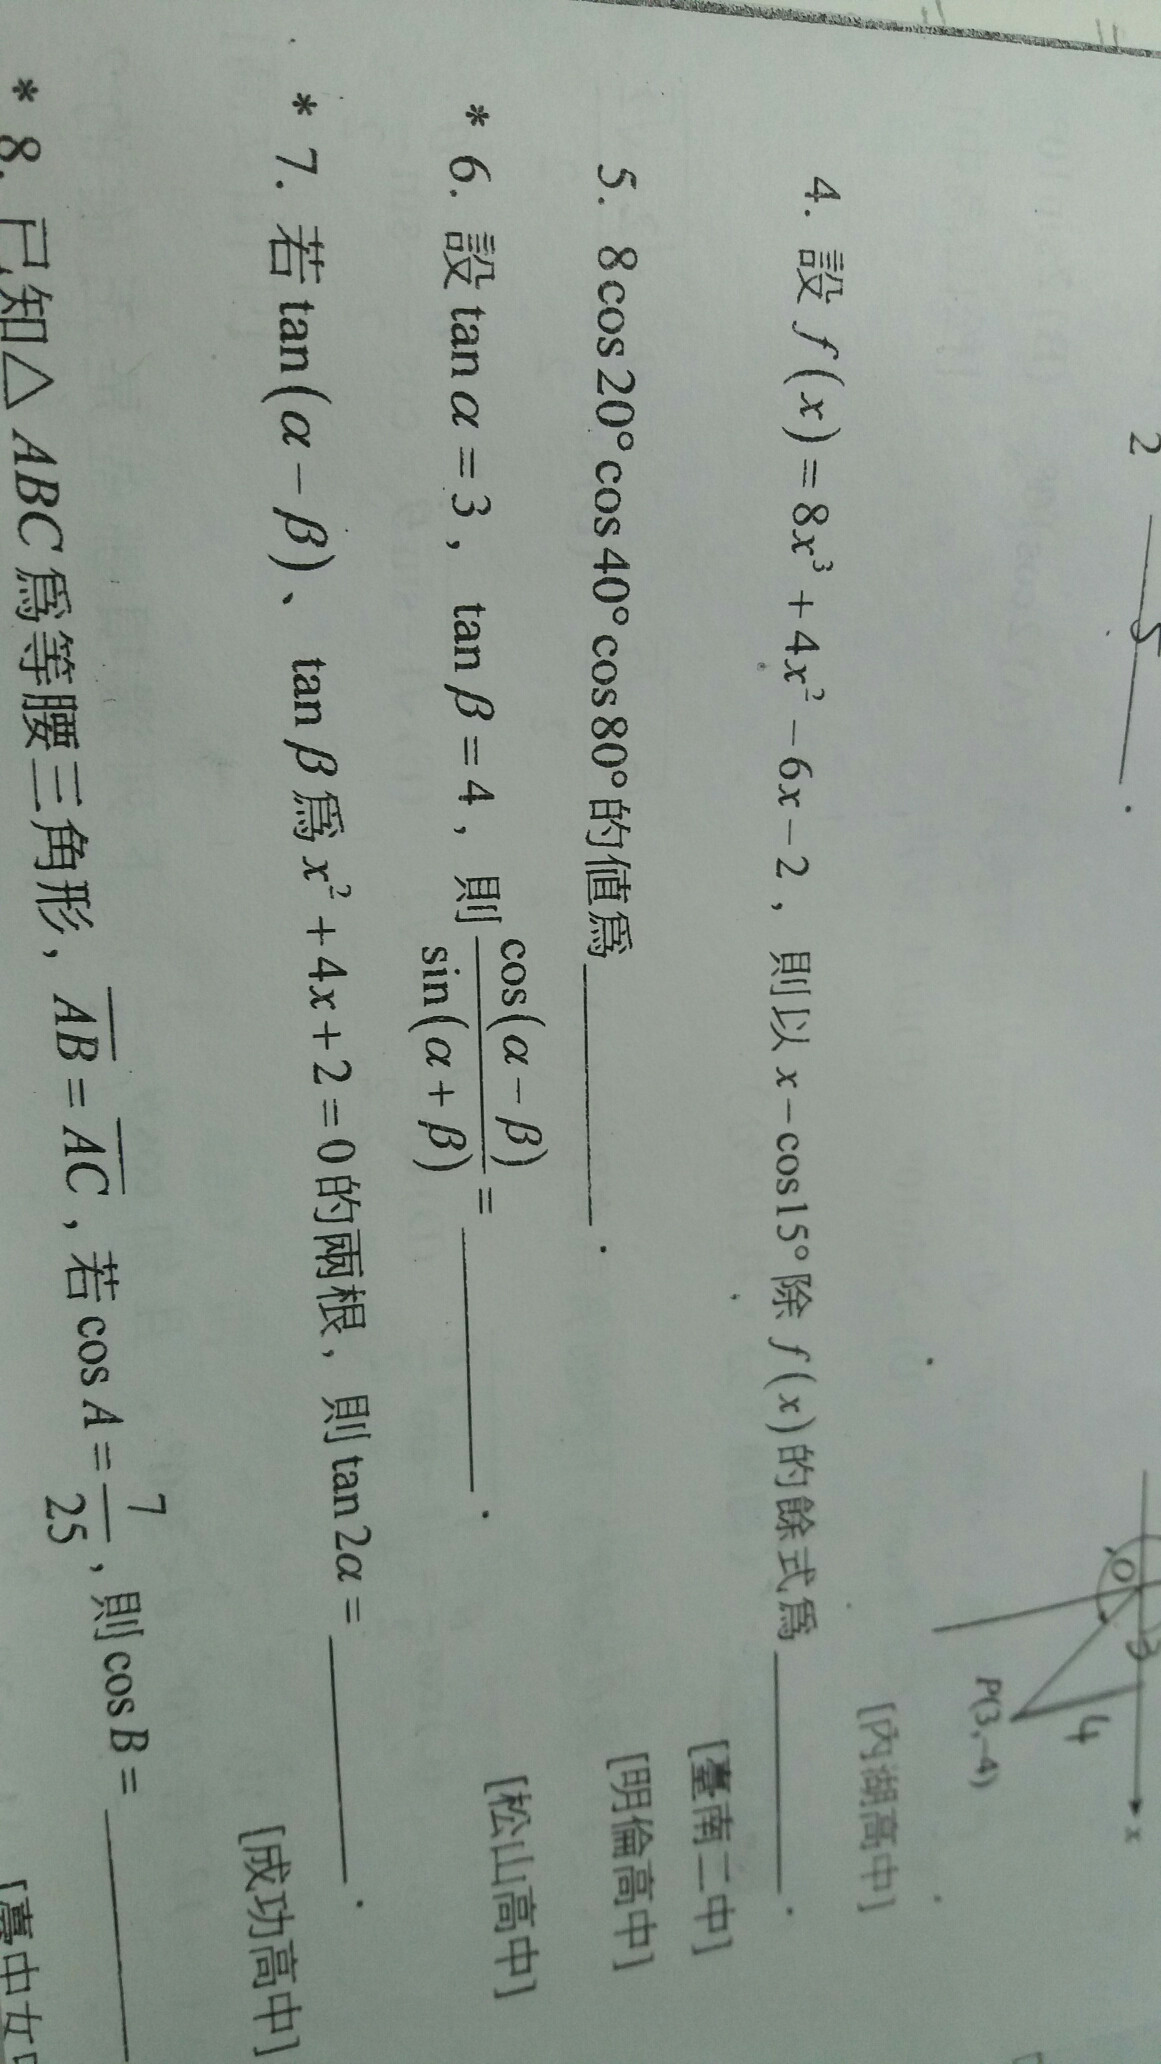 2
5
.
O
3
4
x
P(3,-4)
[內湖高中]
4. 設 f(x)=8x³+4x²-6x-2, 則以 x-cos15° 除 f(x) 的餘式為______.
[臺南二中]
5. 8cos20°cos40°cos80°的值為______.
[明倫高中]
* 6. 設 tanα=3, tanβ=4, 則 cos(α-β)/sin(α+β) = ______.
[松山高中]
* 7. 若 tan(α-β)、tanβ 為 x²+4x+2=0 的兩根, 則 tan2α=______.
[成功高中]
* 8. 已知△ABC 為等腰三角形, AB=AC, 若 cosA=7/25, 則 cosB=______
[臺中女